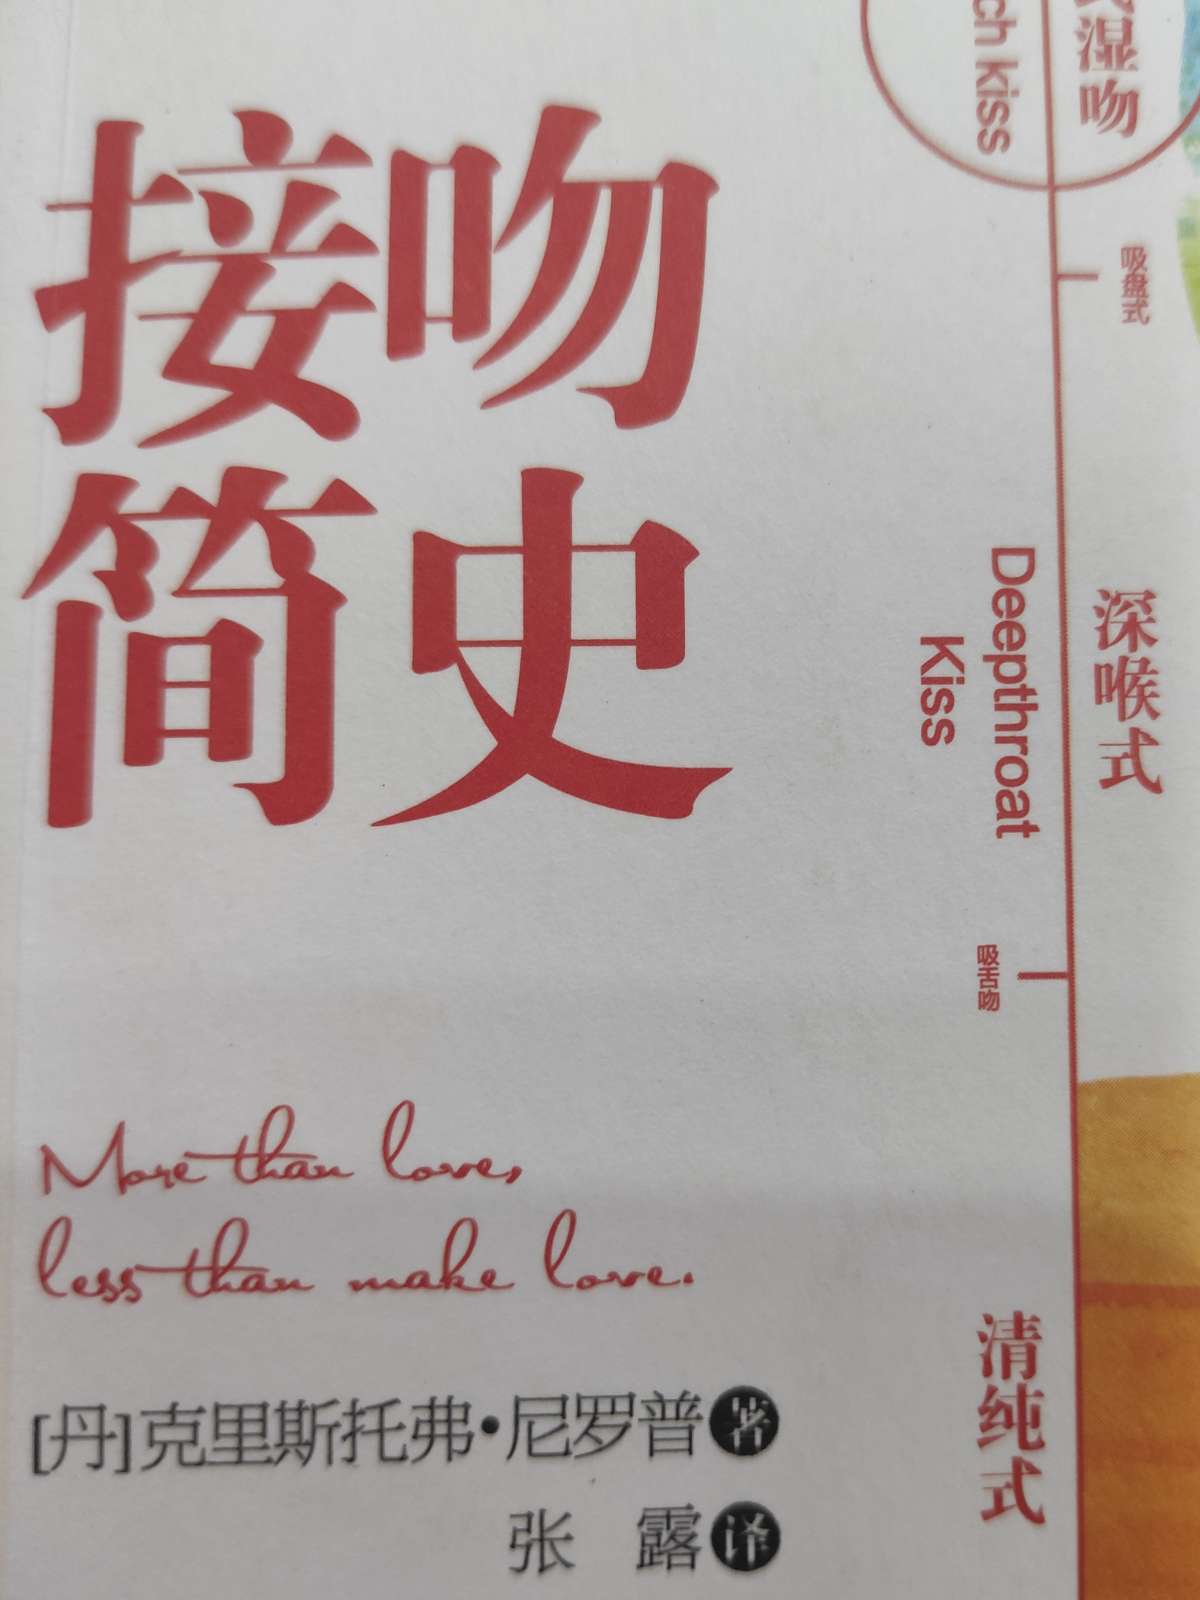 接吻
简史
More than love,
less than make love.
[丹]克里斯托弗·尼罗普 著
张 露 译
湿吻
ch kiss
吸盘式
深喉式
Deepthroat
Kiss
吸舌吻
清纯式